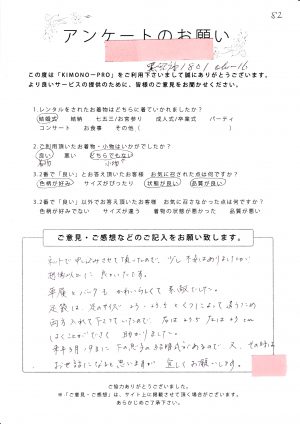 82
アンケートのお願い
1801
この度は「KIMONO-PRO」をご利用下さいまして誠にありがとうございます。
より良いサービスの提供のために、皆様のご意見をお聞かせください。
1.レンタルをされたお着物はどちらに着ていかれましたか?
結婚式 結納 七五三/お宮参り 成人式/卒業式 パーティ
コンサート お食事 その他( )
2.ご利用頂いたお着物・小物はいかがでしたか?
良い 悪い どちらでもない
着物 小物
3.2番で「良い」とお答え頂いたお客様 お気に召された点は何ですか?
色柄が好み サイズがぴったり 状態が良い 品質が良い
3.2番で「良い」以外でお答え頂いたお客様 お気に召さなかった点は何ですか?
色柄が好みでない サイズが違う 着物の状態が悪かった 品質が悪い
ご意見・ご感想などのご記入をお願い致します。
ネットで申し込みさせて頂いたので、少し不安はありましたが
想像以上に良かったです。
草履とバックも かわいらしくて 素敵でした。
足袋は、足のサイズ 23、23.5 と くつによって違うため
両方入れて下さっていたので、右は23.5 左は23cm
はくことができて 助かりました。
来年3月19日に 下の息子の結婚式があるので 又、その時は
お世話になると思いますが 宜しくお願いします。
ご協力ありがとうございました。
※「ご意見・ご感想」は、サイト上に掲載させて頂く場合がございます。
あらかじめご了承下さい。